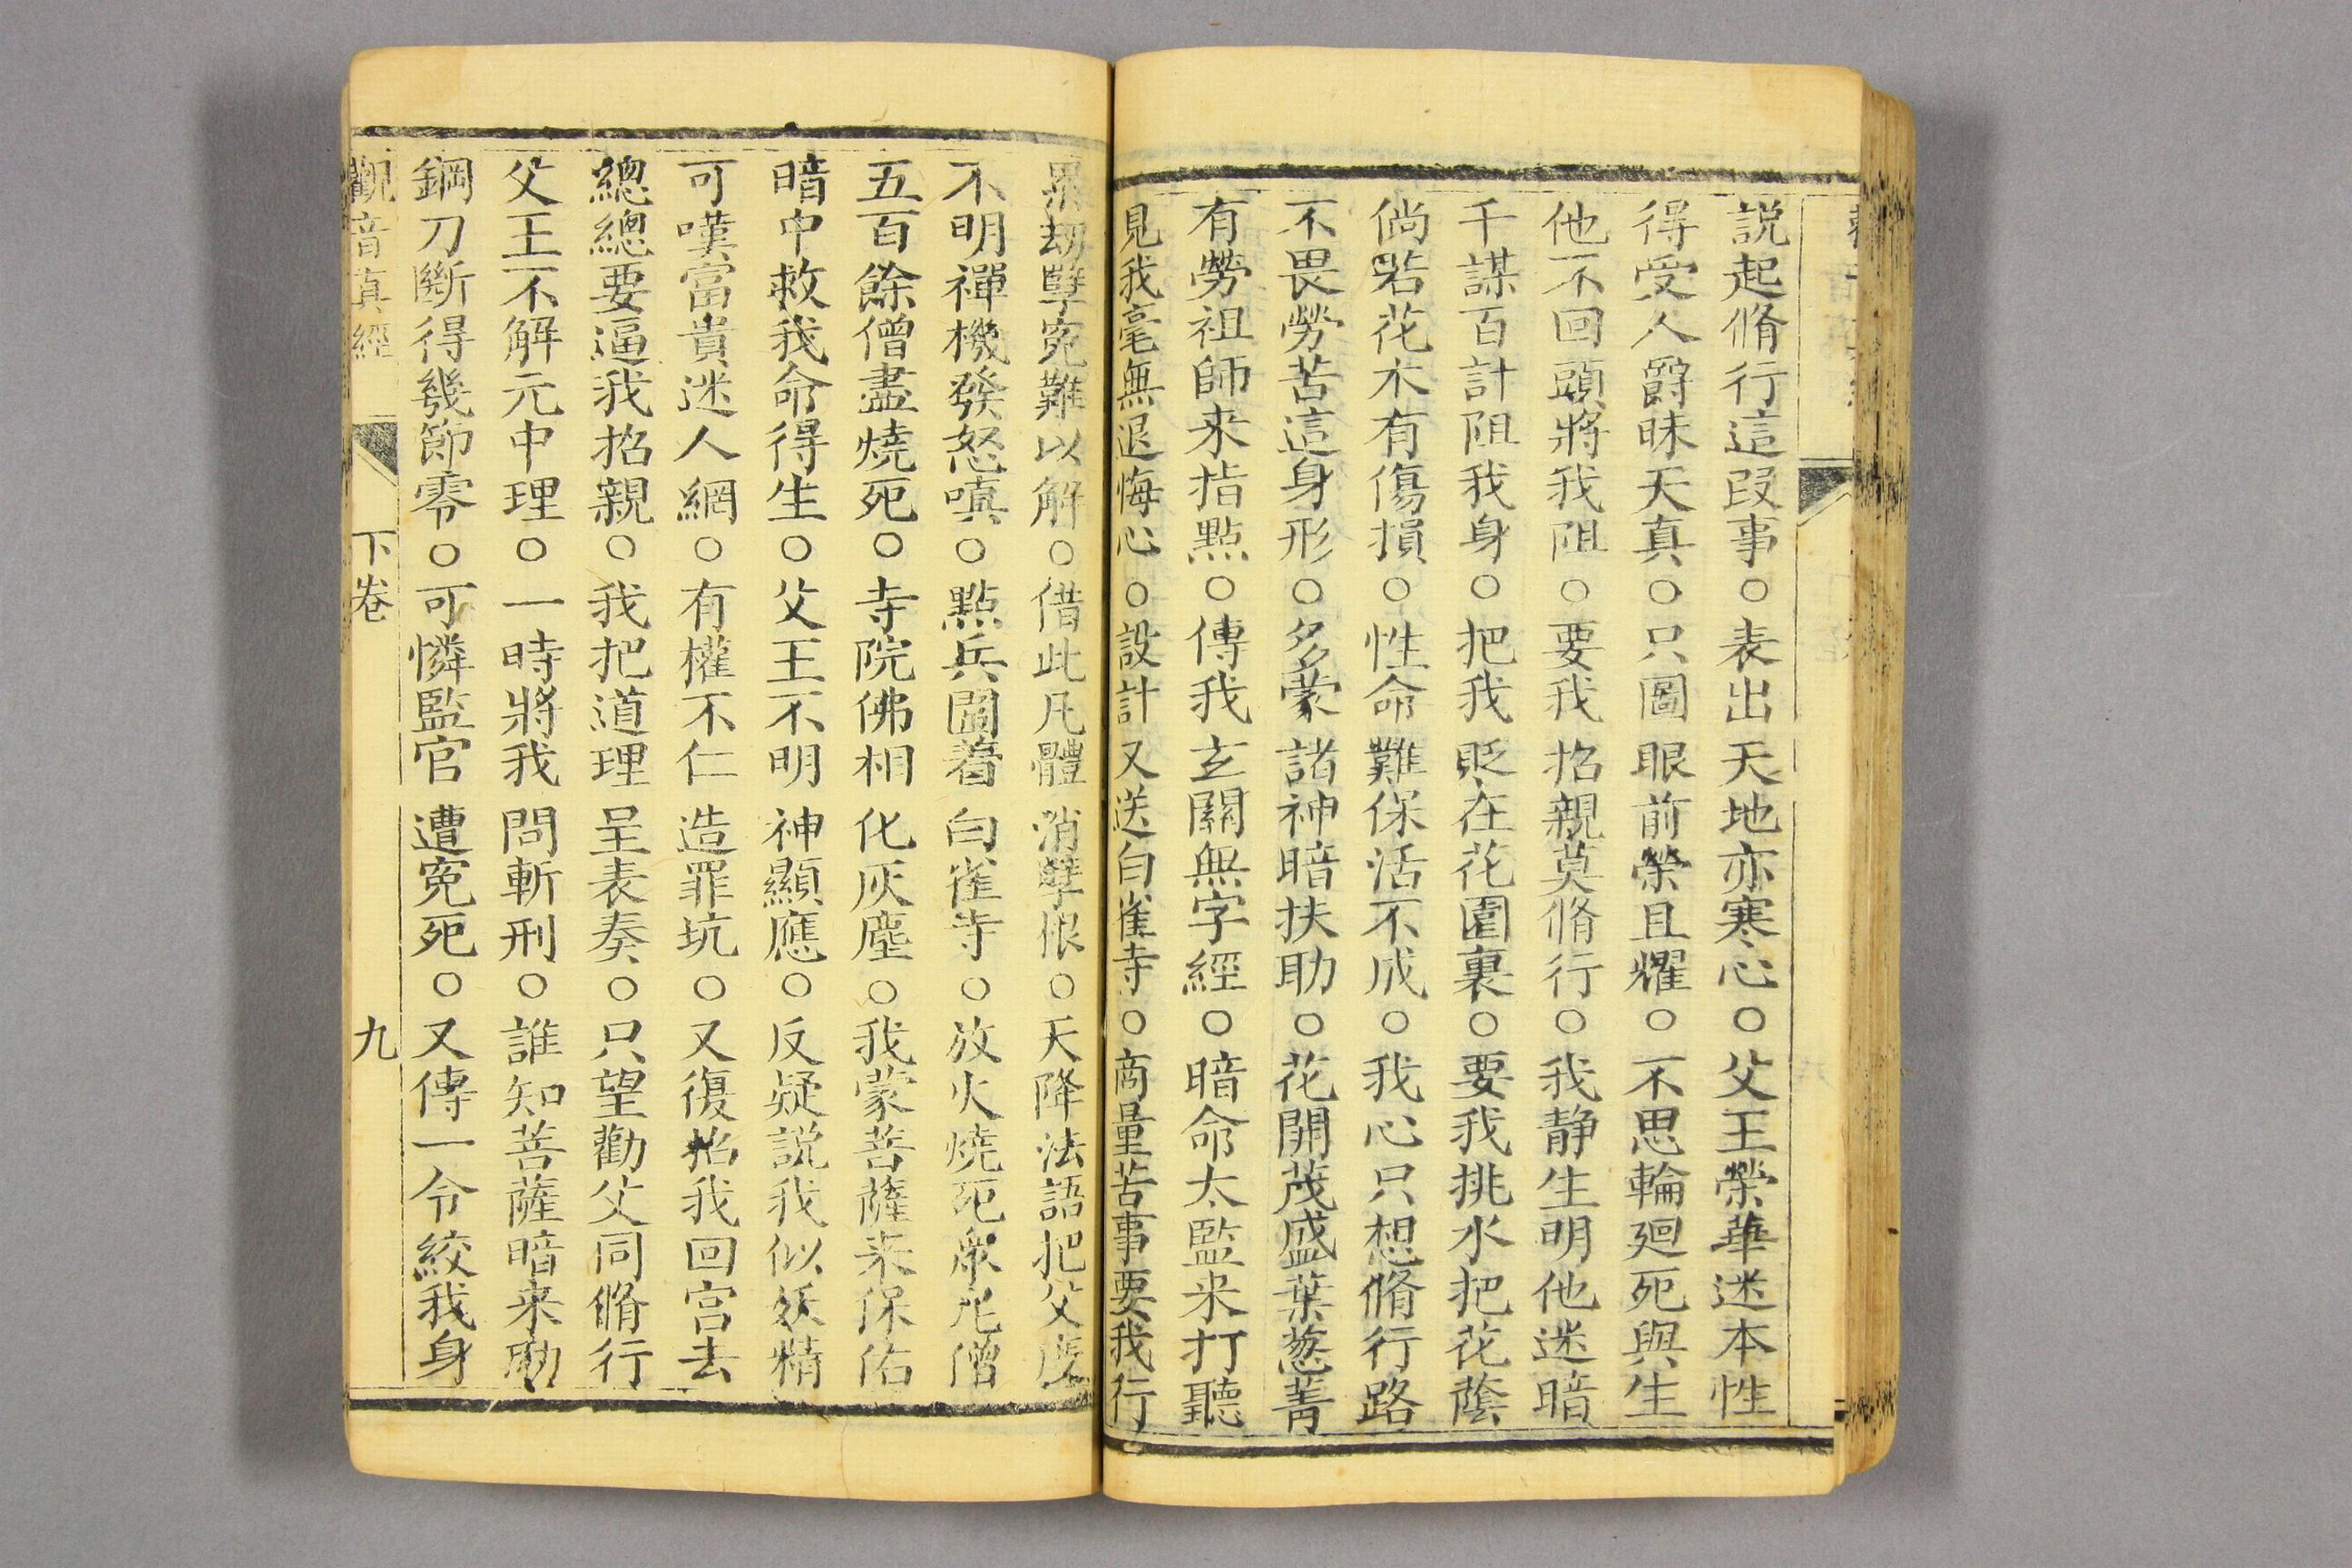 説起脩行這段事○表出天地亦寒心○父王榮華迷本性
得受人爵昧天真○只圖眼前榮且耀○不思輪廻死與生
他不回頭將我阻○要我招親莫脩行○我静生明他迷暗
千謀百計阻我身○把我貶在花園裏○要我挑水把花蔭
倘若花木有傷損○性命難保活不成○我心只想脩行路
不畏勞苦這身形○多蒙諸神暗扶助○花開茂盛葉葱菁
有勞祖師来指點○傳我玄關無字經○暗命太監来打聽
見我毫無退悔心○設計又送白雀寺○商量苦事要我行
累劫孽寃難以解○借此凡體消孽根○天降法語把父度
不明禪機發怒嗔○點兵圍着白雀寺○放火燒死衆尼僧
五百餘僧盡燒死○寺院佛相化灰塵○我蒙菩薩来保佑
暗中救我命得生○父王不明神顯應○反疑説我似妖精
可嘆富貴迷人網○有權不仁造罪坑○又復招我回宫去
總總要逼我招親○我把道理呈表奏○只望勸父同脩行
父王不解元中理○一時將我問斬刑○誰知菩薩暗来助
鋼刀斷得幾節零○可憐監官遭寃死○又傳一令絞我身
觀音真經 下卷 九